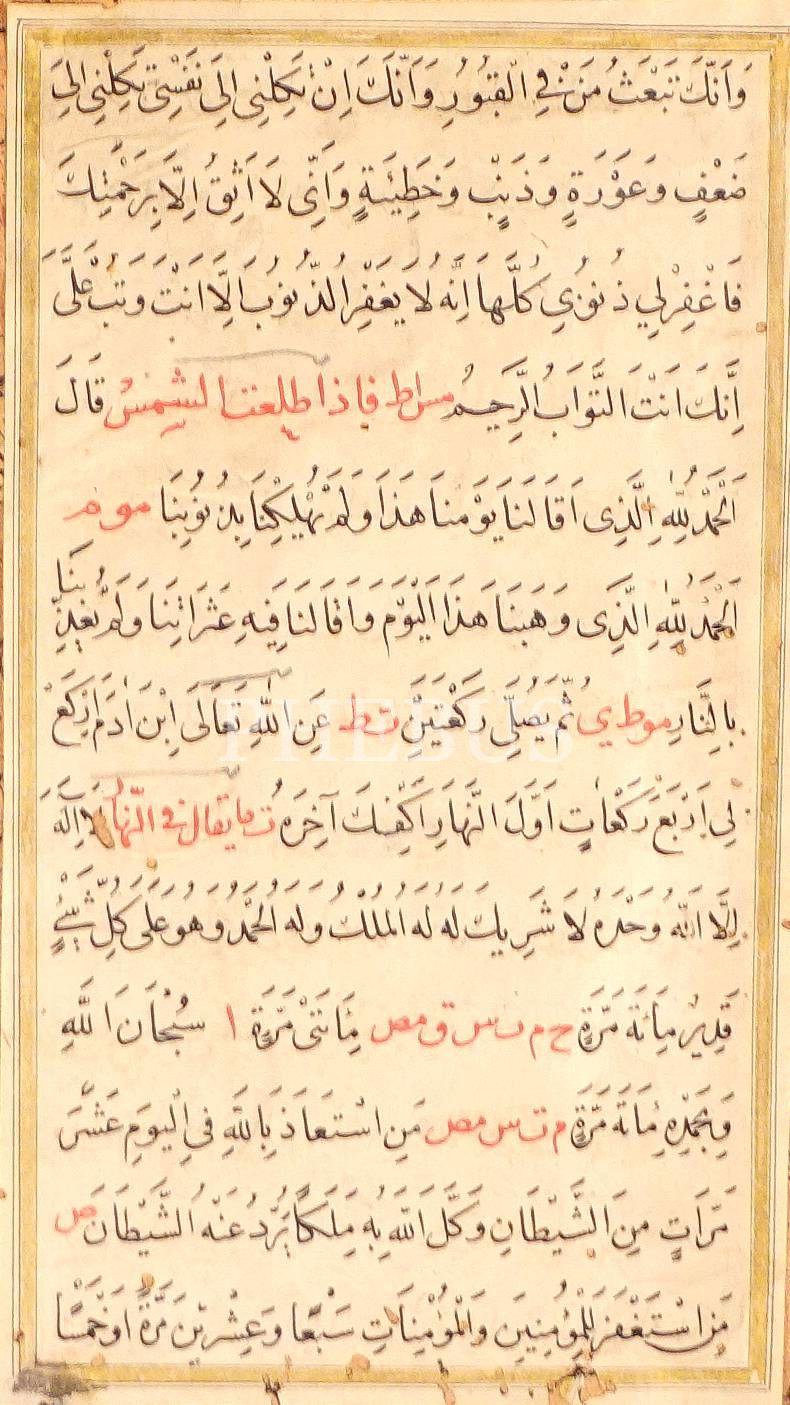 وَاَنَّكَ تَبْعَثُ مَنْ فِي الْقُبُورِ وَاَنَّكَ اِنْ تَكِلْنِي اِلَى نَفْسِي تَكِلْنِي اِلَى
ضَعْفٍ وَعَوْرَةٍ وَذَنْبٍ وَخَطِيْئَةٍ وَاَنِّي لَا اَثِقُ اِلَّا بِرَحْمَتِكَ
فَاغْفِرْلِي ذُنُوْبِي كُلَّهَا اِنَّهُ لَا يَغْفِرُ الذُّنُوْبَ اِلَّا اَنْتَ وَتُبْ عَلَيَّ
اِنَّكَ اَنْتَ التَّوَابُ الرَّحِيمُ مس اط فاذا طلعت الشمس قَالَ
اَلْحَمْدُ لِلّٰهِ الَّذِي اَقَالَنَا يَوْمَنَا هَذَا وَلَمْ يُهْلِكْنَا بِذُنُوْبِنَا مو م
اَلْحَمْدُ لِلّٰهِ الَّذِي وَهَبَنَا هَذَا الْيَوْمَ وَاَقَالَنَا فِيهِ عَثَرَاتِنَا وَلَمْ يُعَذِّبْنَا
بِالنَّارِ مو ط ي ثُمَّ يُصَلِّي رَكْعَتَيْنِ ت ط عَنِ اللّٰهِ تَعَالَى اِبْنَ اٰدَمَ اِرْكَعْ
لِي اَرْبَعَ رَكَعَاتٍ اَوَّلَ النَّهَارِ اَكْفِكَ آخِرَهُ ت ما يقال في النهار لَا اِلَهَ
اِلَّا اللّٰهُ وَحْدَهُ لَا شَرِيكَ لَهُ لَهُ الْمُلْكُ وَلَهُ الْحَمْدُ وَهُوَ عَلَى كُلِّ شَيْءٍ
قَدِيرٌ مِائَةَ مَرَّةٍ خ م ت س ق مص مِائَتَيْ مَرَّةٍ ا سُبْحَانَ اللَّهِ
وَبِحَمْدِهِ مِائَةَ مَرَّةٍ م ت س مص مَنِ اسْتَعَاذَ بِاللَّهِ فِي الْيَوْمِ عَشْرَ
مَرَاتٍ مِنَ الشَّيْطَانِ وَكَّلَ اللّٰهُ بِهِ مَلَكًا يَرُدُّ عَنْهُ الشَّيْطَانَ ص
مَنِ اسْتَغْفَرَ لِلْمُؤْمِنِينَ وَالْمُؤْمِنَاتِ سَبْعًا وَعِشْرِيْنَ مَرَّةً اَوْ خَمْسًا
THEBUS